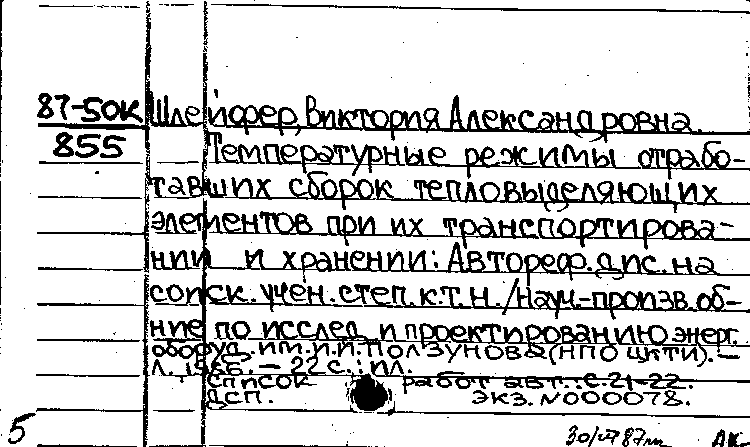 87-50К Шлейфер, Виктория Александровна.
855 Температурные режимы отрабо-
тавших сборок тепловыделяющих
элементов при их транспортирова-
нии и хранении: Автореф. дис. на
соиск. учен. степ. к.т.н. /Науч.-произв. об-
ние по исслед. и проектированию энерг.
оборуд. им. И.И. Ползунова (НПО ЦКТИ). –
Л. 1986. – 22 с.: ил.
Список работ авт.: с. 21-22.
ДСП. ЭКЗ. N000078.
5 87 АК-